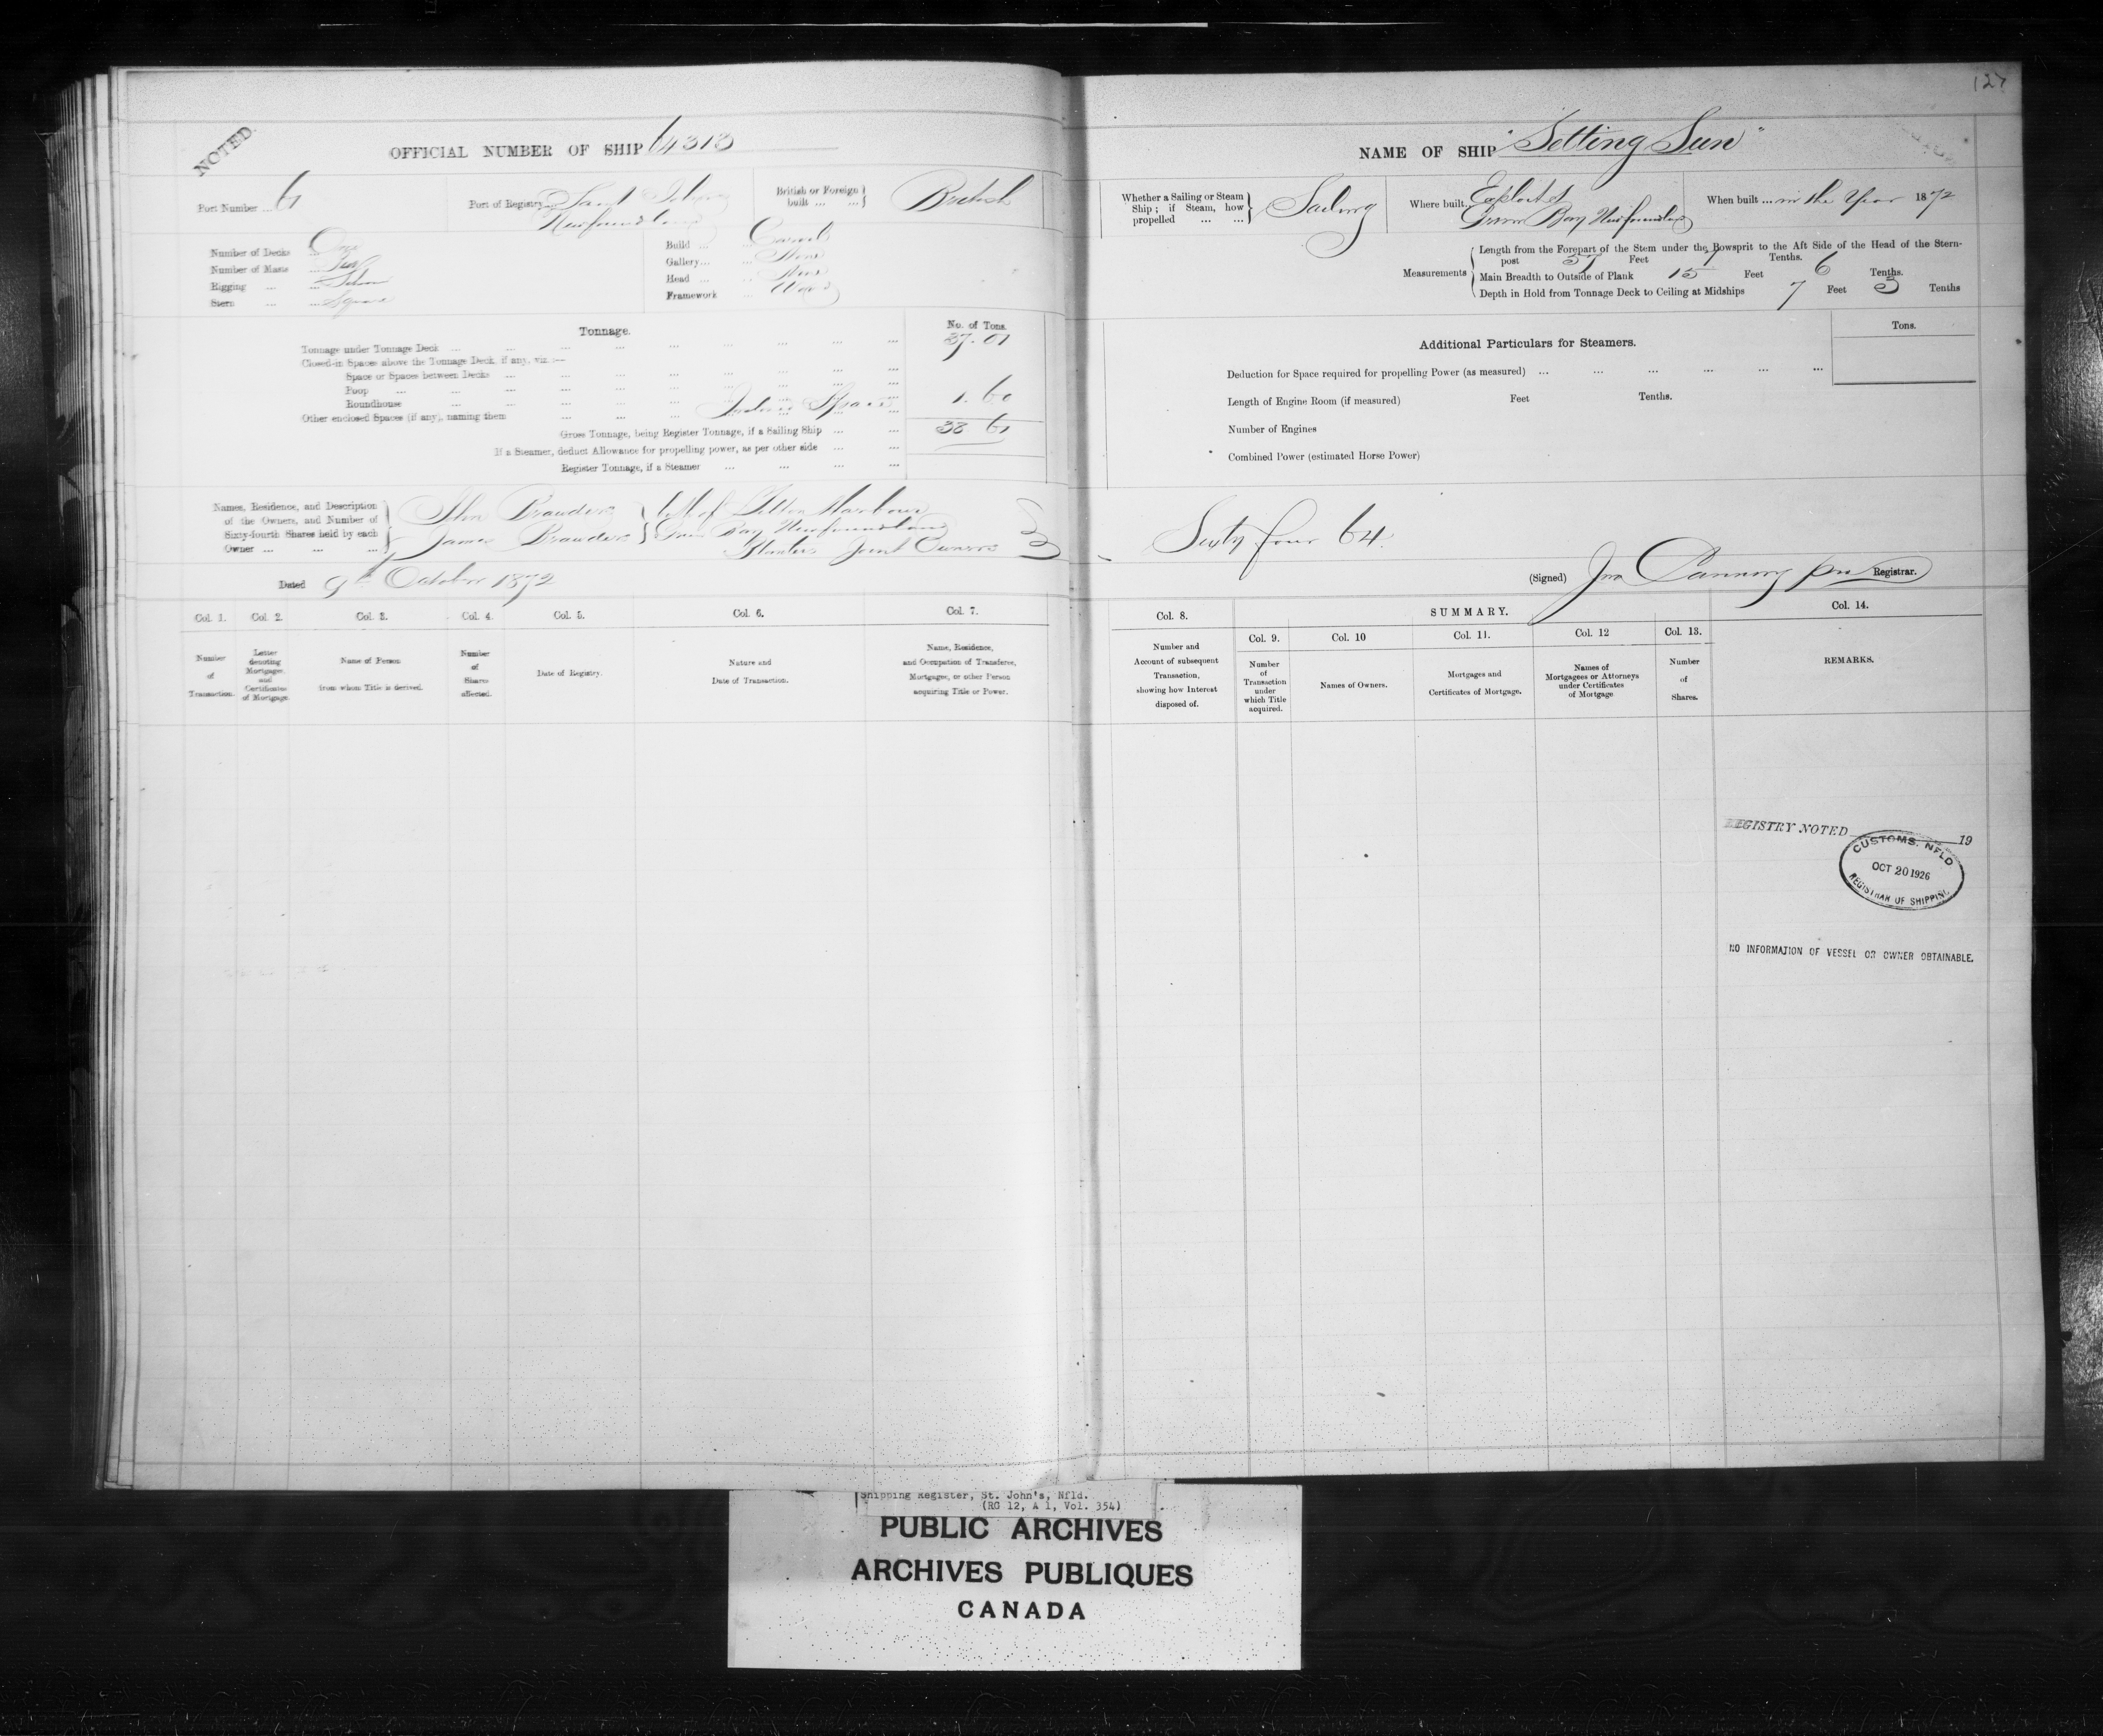 127
NOTED
OFFICIAL NUMBER OF SHIP 64313
Port Number ... 61
Port of Registry Saint Johns
Newfoundland
British or Foreign built ... ... British
Number of Decks ... One
Number of Masts ... Two
Rigging ... ... Schr
Stern ... ... Square
Build ... ... Carvel
Gallery... ... None
Head ... ... None
Framework ... Wood
Tonnage.
No. of Tons.
Tonnage under Tonnage Deck ... 37.01
Closed-in Spaces above the Tonnage Deck, if any, viz :—
Space or Spaces between Decks ...
Poop ...
Roundhouse ...
Other enclosed Spaces (if any), naming them ... Space 1.60
Gross Tonnage, being Register Tonnage, if a Sailing Ship ... 38 61
If a Steamer, deduct Allowance for propelling power, as per other side ...
Register Tonnage, if a Steamer ...
Names, Residence, and Description
of the Owners, and Number of
Sixty-fourth Shares held by each
Owner ... ... ...
John
James
both of Tilton Harbour
Green Bay Newfoundland
Planters Joint Owners
Dated 9th October 1872
Col. 1. Col. 2. Col. 3. Col. 4. Col. 5. Col. 6. Col. 7.
Number of Transaction.
Letter denoting Mortgages and Certificates of Mortgage.
Name of Person from whom Title is derived.
Number of Shares affected.
Date of Registry.
Nature and Date of Transaction.
Name, Residence, and Occupation of Transferee, Mortgagee, or other Person acquiring Title or Power.
NAME OF SHIP "Setting Sun"
Whether a Sailing or Steam Ship ; if Steam, how propelled ... ... Sailing
Where built. Exploits
Green Bay Newfoundland
When built ... in the Year 1872
Measurements
Length from the Forepart of the Stem under the Bowsprit to the Aft Side of the Head of the Stern-
post 57 Feet 7 Tenths.
Main Breadth to Outside of Plank 15 Feet 6 Tenths.
Depth in Hold from Tonnage Deck to Ceiling at Midships 7 Feet 3 Tenths
Tons.
Additional Particulars for Steamers.
Deduction for Space required for propelling Power (as measured) ...
Length of Engine Room (if measured) Feet Tenths.
Number of Engines
Combined Power (estimated Horse Power)
Sixty four 64.
(Signed) Jno Canning Registrar.
Col. 8. SUMMARY. Col. 14.
Col. 9. Col. 10 Col. 11. Col. 12 Col. 13.
Number and Account of subsequent Transaction, showing how Interest disposed of.
Number of Transaction under which Title acquired.
Names of Owners.
Mortgages and Certificates of Mortgage.
Names of Mortgagees or Attorneys under Certificates of Mortgage
Number of Shares.
REMARKS.
REGISTRY NOTED 19
CUSTOMS. NFLD
OCT 20 1926
REGISTRAR OF SHIPPING
NO INFORMATION OF VESSEL OR OWNER OBTAINABLE.
Shipping Register, St. John's, Nfld.
(RG 12, A 1, Vol. 354)
PUBLIC ARCHIVES
ARCHIVES PUBLIQUES
CANADA